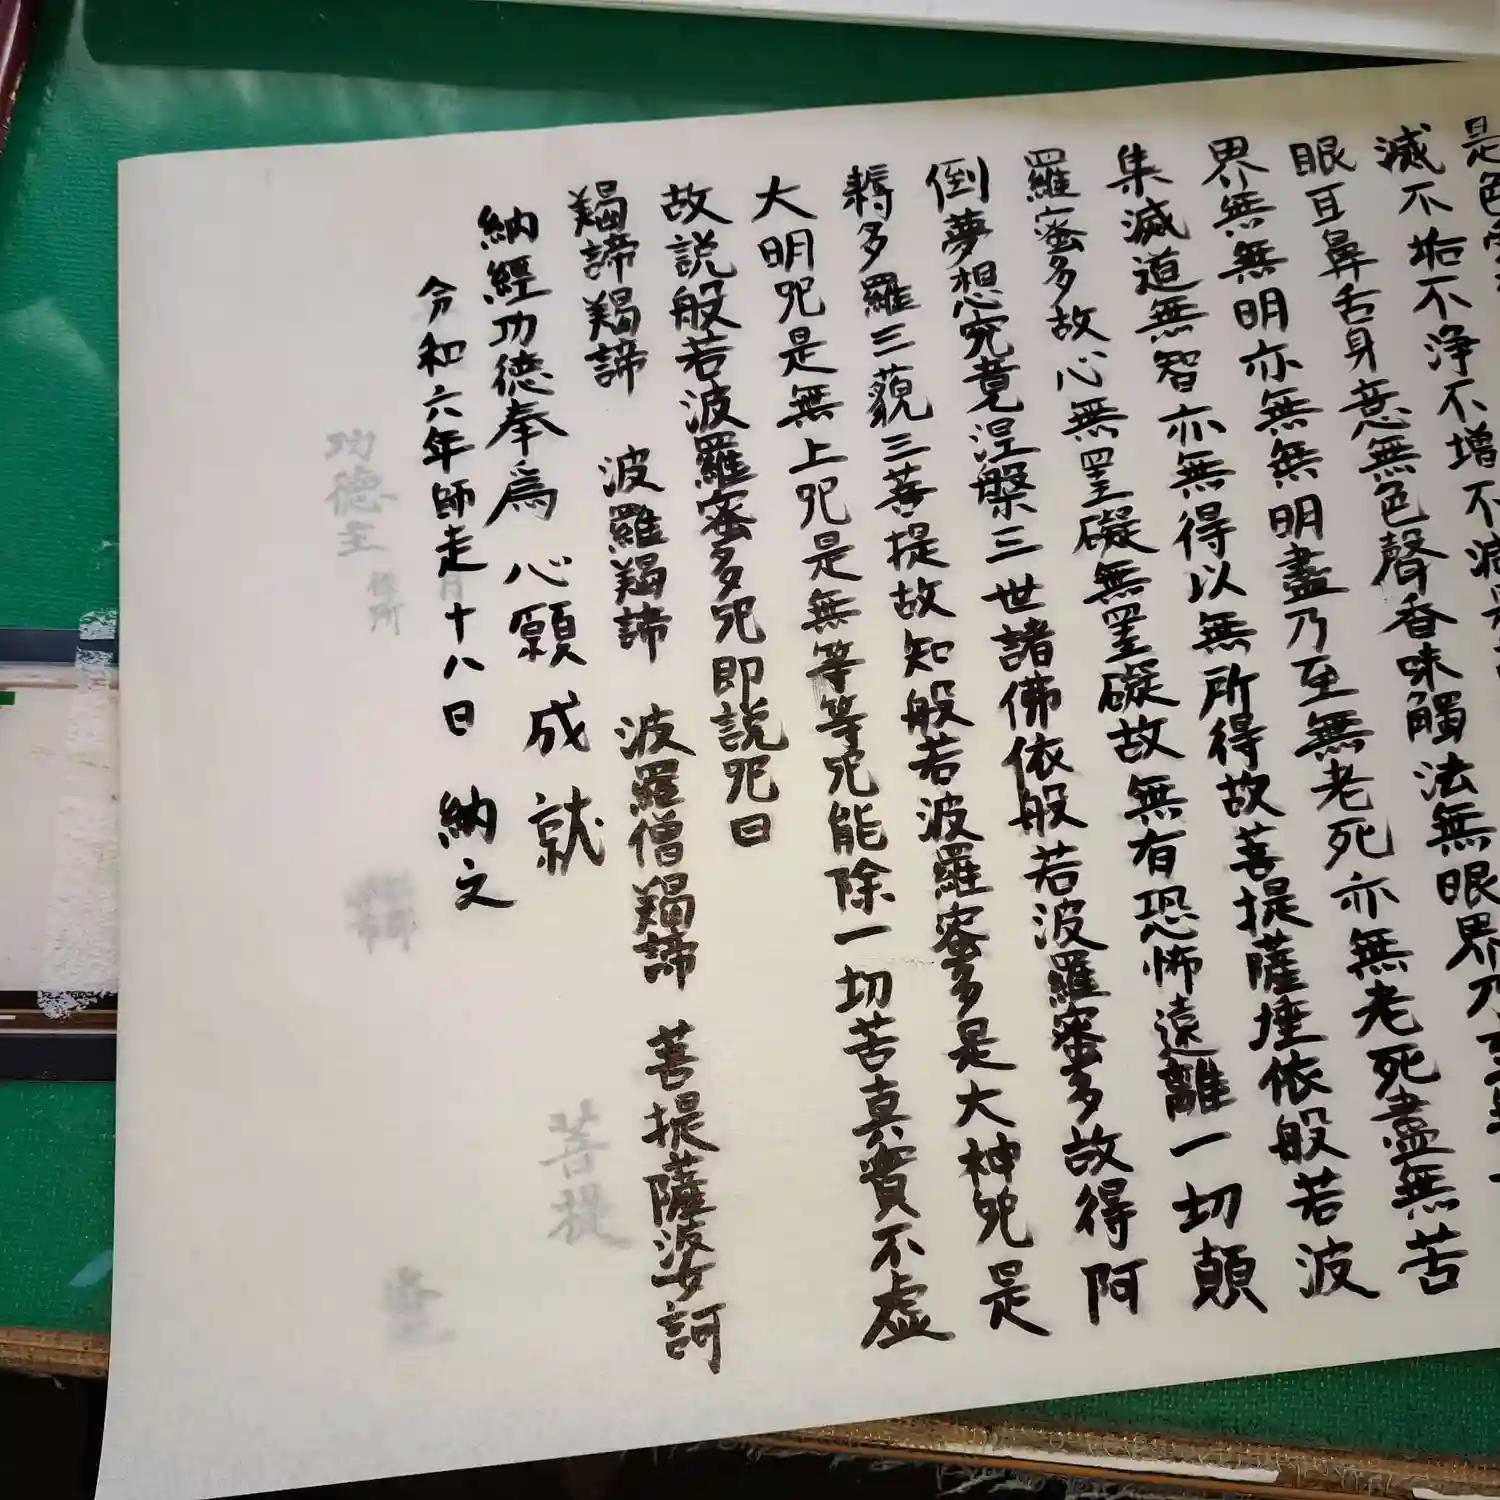 是色
滅不垢不浄不增不減是
眼耳鼻舌身意無色聲香味觸法無眼界乃至無
界無無明亦無無明盡乃至無老死亦無老死盡無苦
集滅道無智亦無得以無所得故菩提薩埵依般若波
羅蜜多故心無罣礙無罣礙故無有恐怖遠離一切顛
倒夢想究竟涅槃三世諸佛依般若波羅蜜多故得阿
耨多羅三藐三菩提故知般若波羅蜜多是大神咒是
大明咒是無上咒是無等等咒能除一切苦真實不虚
故説般若波羅蜜多咒即説咒曰
羯諦羯諦 波羅羯諦 波羅僧羯諦 菩提薩婆訶
納經功德奉為 心願成就
令和六年師走十八日 納文
月
功德主
住所
菩提